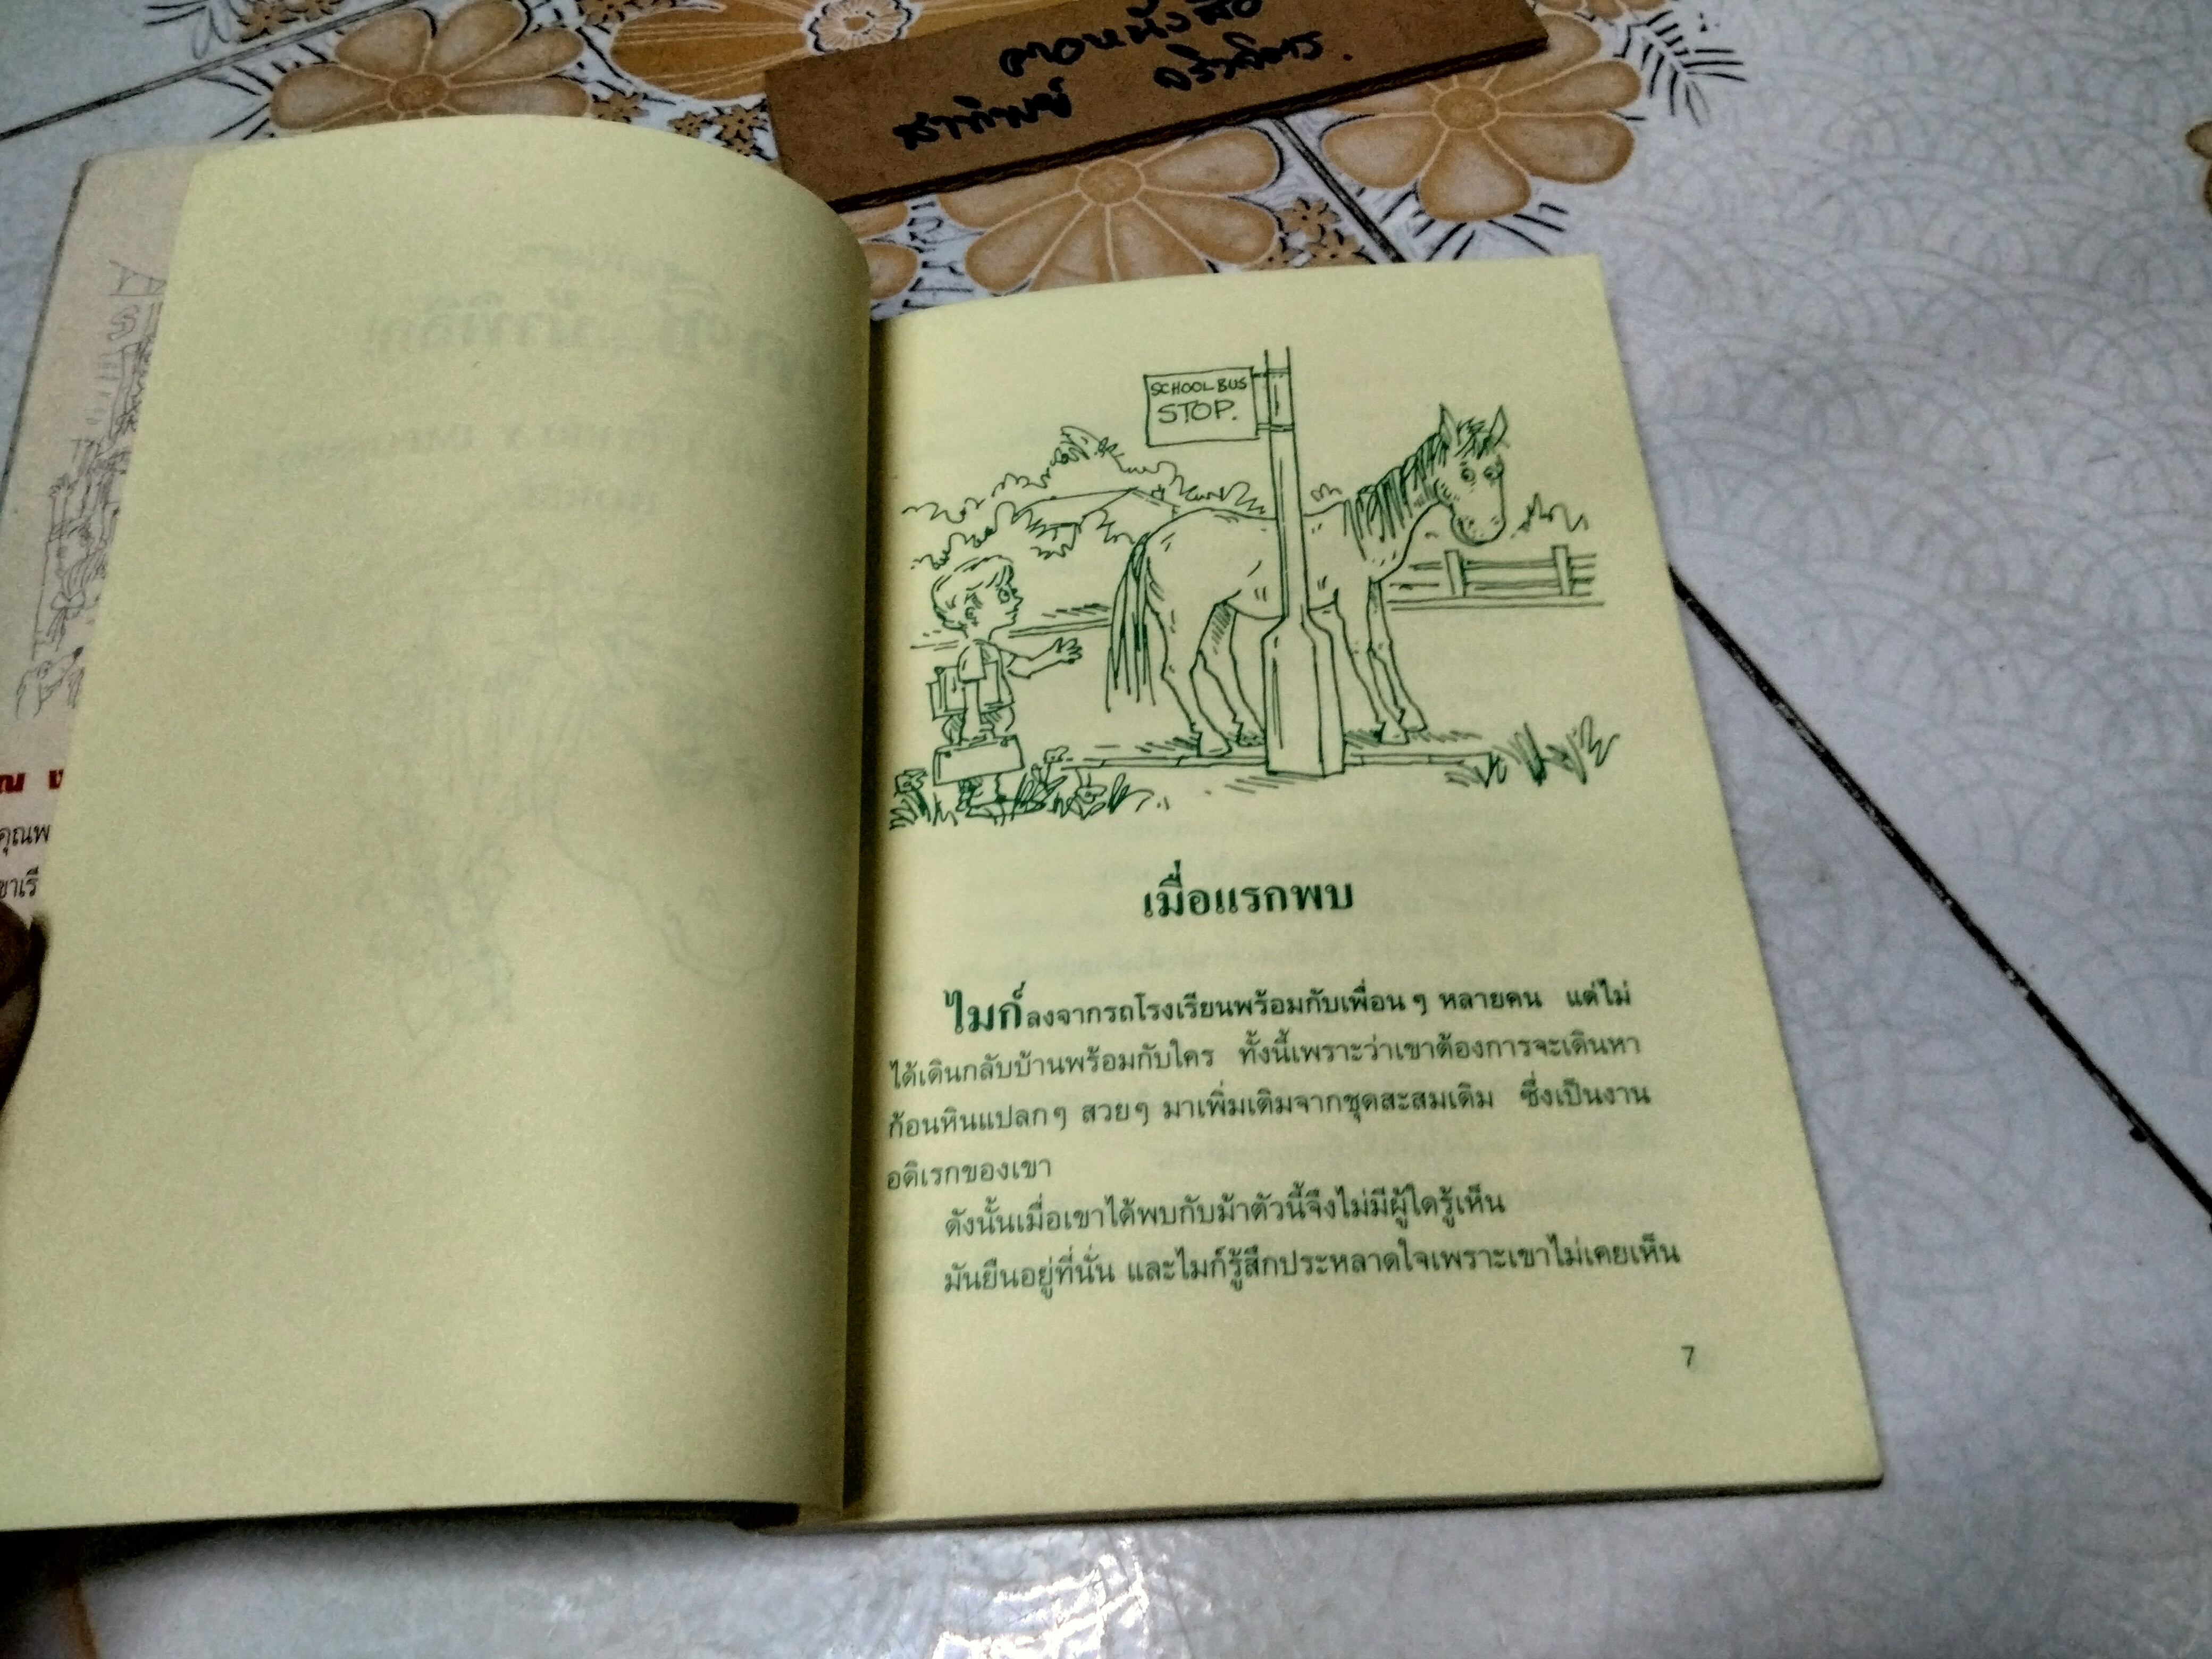 SCHOOL BUS
STOP.
เมื่อแรกพบ
ไมก์ลงจากรถโรงเรียนพร้อมกับเพื่อน ๆ หลายคน แต่ไม่
ได้เดินกลับบ้านพร้อมกับใคร ทั้งนี้เพราะว่าเขาต้องการจะเดินหา
ก้อนหินแปลก ๆ สวย ๆ มาเพิ่มเติมจากชุดสะสมเดิม ซึ่งเป็นงาน
อดิเรกของเขา
ดังนั้นเมื่อเขาได้พบกับม้าตัวนี้จึงไม่มีผู้ใดรู้เห็น
มันยืนอยู่ที่นั่น และไมก์รู้สึกประหลาดใจเพราะเขาไม่เคยเห็น
7
คุณพ
ขาเรี